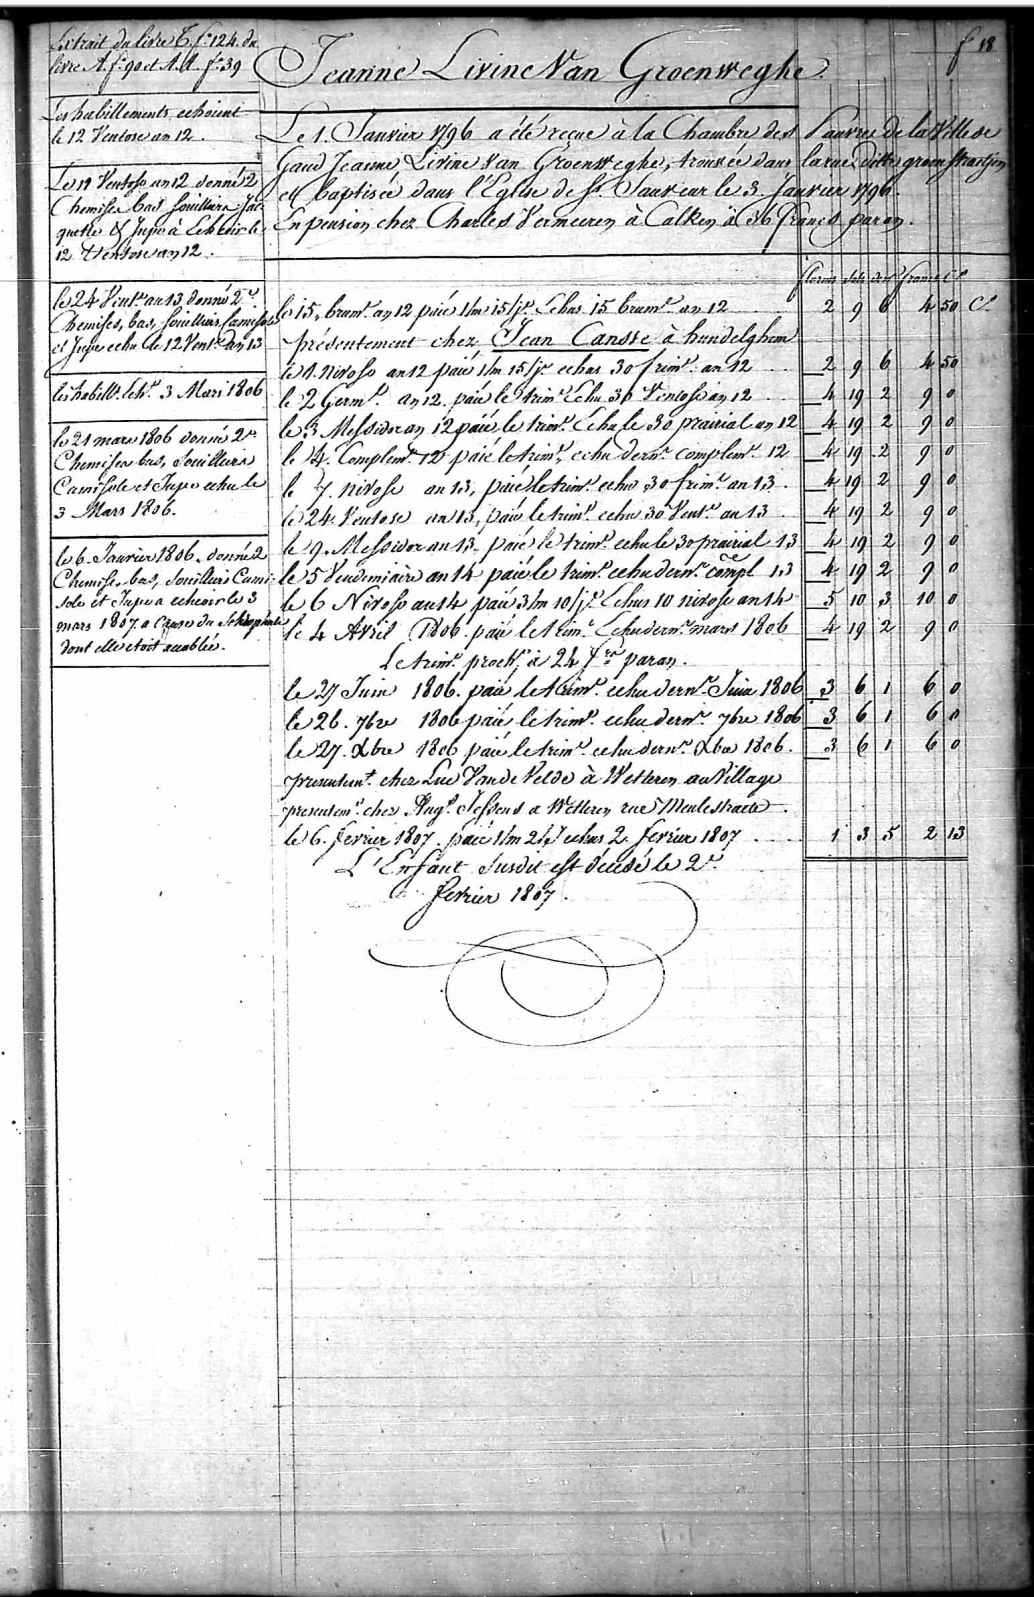 f 18
Extrait du livre C. f.o 124. du
livre A. f.o 90 et A.A. f.o 39
Jeanne Livine Van Groenweghe.
Les habillements echoient
le 12 Ventose an 12.
Le 19 Ventose an 12 donné 2
Chemises bas souilliers Jac
quette & Jupe à Echeoir le
12 Ventose an 12.
le 24 Vent.e an 13 donné 2.
Chemises, bas, souilliers, Camisole
et Jupe echu le 12 Vent. an 13
les habill. ech.t 3 Mars 1806
le 21 mars 1806 donné 2
Chemises bas, souilliers
Camisole et Jupe echu le
3 Mars 1806.
le 6. Janvier 1806. donné 2
Chemises, bas, souilliers Cami-
sole et Jupe a echeoir le 3
mars 1807. a Cause du
dont elle etoit accablée.
Le 1. Janvier 1796 a été reçue à la Chambre des Pauvres de la Ville de
Gand Jeanne Livine Van Groenweghe, trouvée dans la rue ditte groen
et baptisée dans l'Eglise de St. Sauveur le 3. Janvier 1796.
En pension chez Charles Vermeiren à Calken à 36 francs par an.
florins sols den.s francs C.s
le 15. brum.e an 12 paié 1/m 15/j.s Echus 15 brum.e an 12 2 9 6 4 50 C.
présentement chez Jean Cansse à hundelghem
le 1. nivose an 12 paié 1/m 15/j.s echus 30 frim.e an 12 ... 2 9 6 4 50
le 2 Germ.l an 12. paié le trim.e Echu 30 Ventose an 12 .. 4 19 2 9 0
le 3 Messidor an 12 paié le trim.e Echu le 30 prairial an 12 4 19 2 9 0
le 4. Complem.e 12 paié le trim.e echu dern.r complem.e 12 4 19 2 9 0
le 7. nivose an 13, paié le trim.e echu 30 frim.e an 13. 4 19 2 9 0
le 24. Ventose an 13, paié le trim.e echu 30 Vent.e an 13. 4 19 2 9 0
le 9. Messidor an 13. paié le trim.e echu le 30 prairial 13 4 19 2 9 0
le 5 Vendemiaire an 14 paié le trim.e echu dern.r compl 13 4 19 2 9 0
le 6 Nivose an 14 paié 3/m 10/j.s Echus 10 nivose an 14 5 10 3 10 0
le 4 Avril 1806. paié le trim.e Echu dern.r mars 1806 4 19 2 9 0
Le trim.e proch.n à 24 f.cs par an.
le 27 Juin 1806. paié le trim.e echu dern.r Juin 1806 3 6 1 6 0
le 26. 7bre 1806 paié le trim.e echu dern.r 7bre 1806 3 6 1 6 0
le 27. Xbre 1806 paié le trim.e echu dern.r Xbre 1806. 3 6 1 6 0
presentem.t chez Luc Van de Velde à Wetteren au Village
presentem.t chez Aug.e Jessens a Wetteren rue Meulestraete.
le 6. fevrier 1807. paié 1/m 2/j echus 2. fevrier 1807 .... 1 3 5 2 13
L'Enfant susdit est décédé le 2.
fevrier 1807.